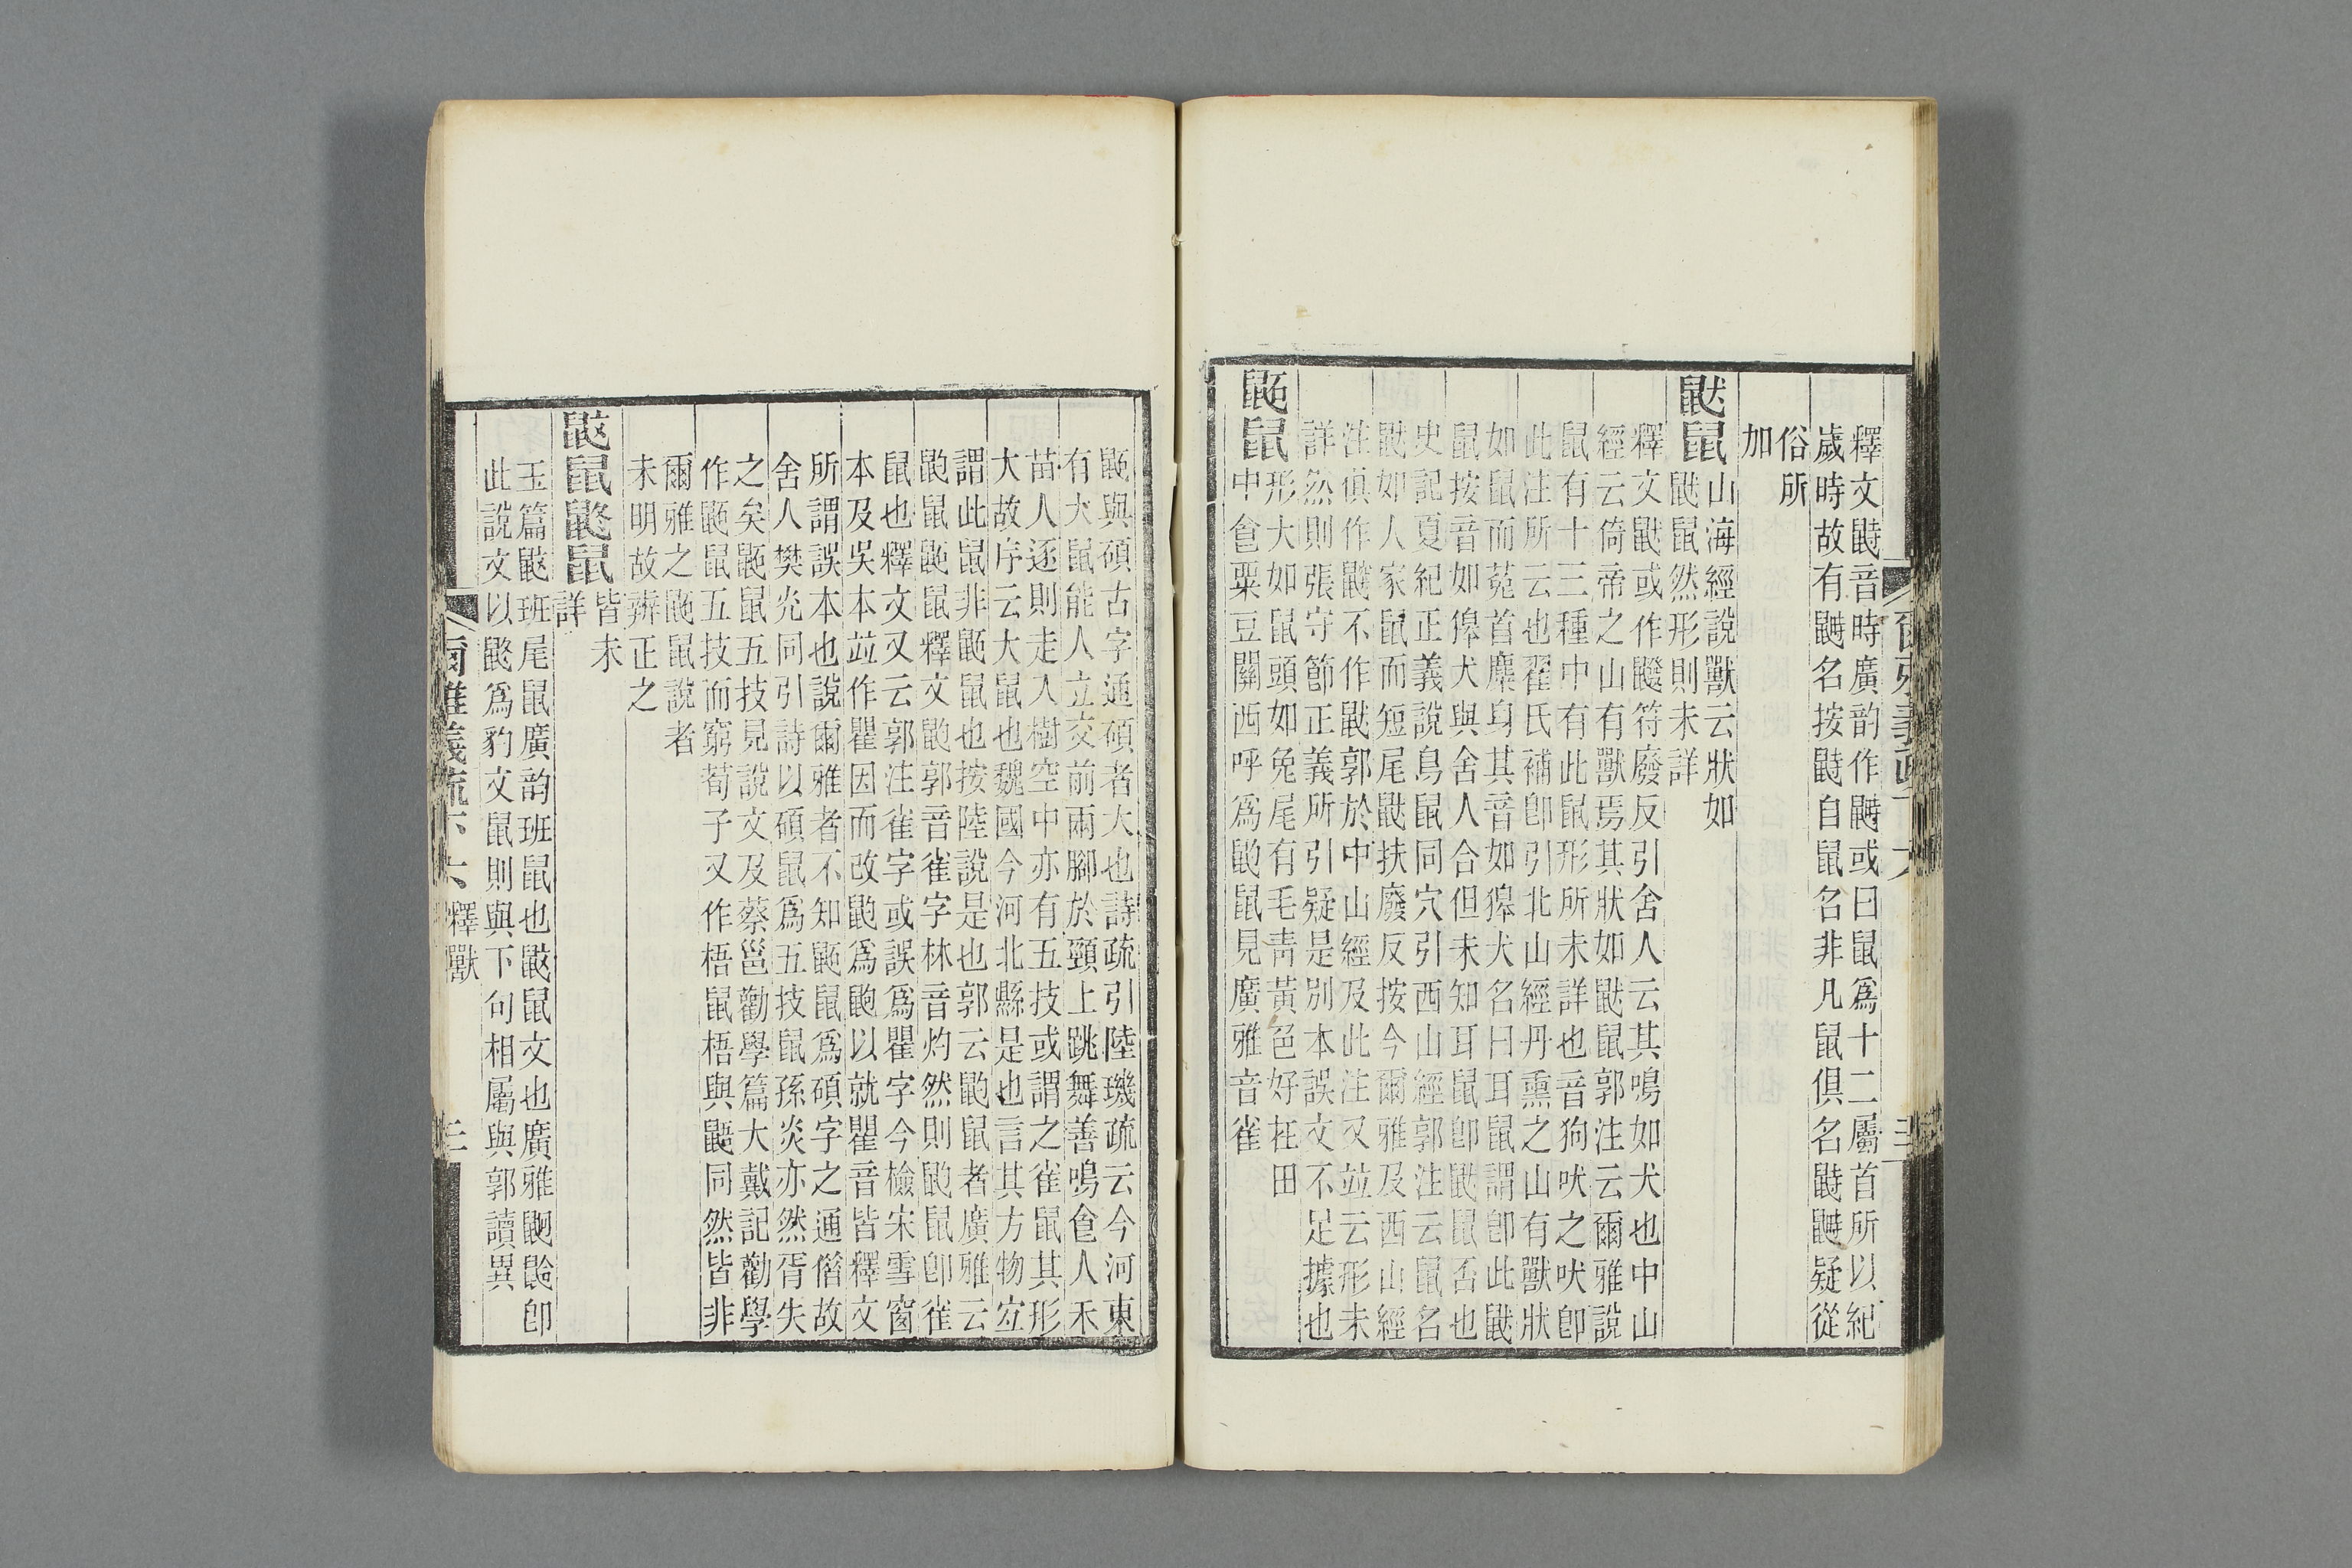 釋文鼭音時廣韵作鼭或曰鼠爲十二屬首所以紀
歲時故有鼭名按鼭自鼠名非凡鼠俱名鼭鼭疑從
俗所
加
鼣鼠
山海經說獸云狀如
鼣鼠然形則未詳
釋文鼣或作𪕌符廢反引舍人云其鳴如犬也中山
經云倚帝之山有獸焉其狀如鼣鼠郭注云爾雅說
鼠有十三種中有此鼠形所未詳也音狗吠之吠卽
此注所云也翟氏補卽引北山經丹熏之山有獸狀
如鼠而菟首麋身其音如獋犬名曰耳鼠謂卽此鼣
鼠按音如獋犬與舍人合但未知耳鼠卽鼣鼠否也
史記夏紀正義說鳥鼠同穴引西山經郭注云鼠名
鼣如人家鼠而短尾鼣扶廢反按今爾雅及西山經
注俱作鼵不作鼣郭於中山經及此注又竝云形未
詳然則張守節正義所引疑是別本誤文不足據也
鼫鼠
形大如鼠頭如兔尾有毛靑黃色好在田
中食粟豆關西呼爲鼩鼠見廣雅音雀
鼫與碩古字通碩者大也詩疏引陸璣疏云今河東
有大鼠能人立交前兩腳於頸上跳舞善鳴食人禾
苗人逐則走入樹空中亦有五技或謂之雀鼠其形
大故序云大鼠也魏國今河北縣是也言其方物宜
謂此鼠非鼫鼠也按陸說是也郭云鼩鼠者廣雅云
鼩鼠鼫鼠釋文鼩郭音雀字林音灼然則鼩鼠卽雀
鼠也釋文又云郭注雀字或誤爲瞿字今檢宋雪窗
本及吳本竝作瞿因而改鼩爲鼩以就瞿音皆釋文
所謂誤本也說爾雅者不知鼫鼠爲碩字之通借故
舍人樊光同引詩以碩鼠爲五技鼠孫炎亦然胥失
之矣鼫鼠五技見說文及蔡邕勸學篇大戴記勸學
作鼫鼠五技而窮荀子又作梧鼠梧與鼯同然皆非
爾雅之鼫鼠說者
未明故辨正之
鼤鼠鼨鼠
皆未
詳
玉篇鼤班尾鼠廣韵班鼠也鼤鼠文也廣雅鼣鼢卽
此說文以鼨爲豹文鼠則與下句相屬與郭讀異
爾雅義疏下六 釋獸